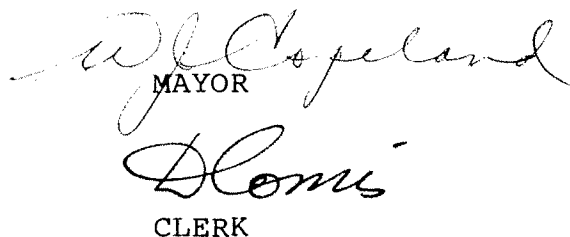 W J Copeland
MAYOR
D Comis
CLERK